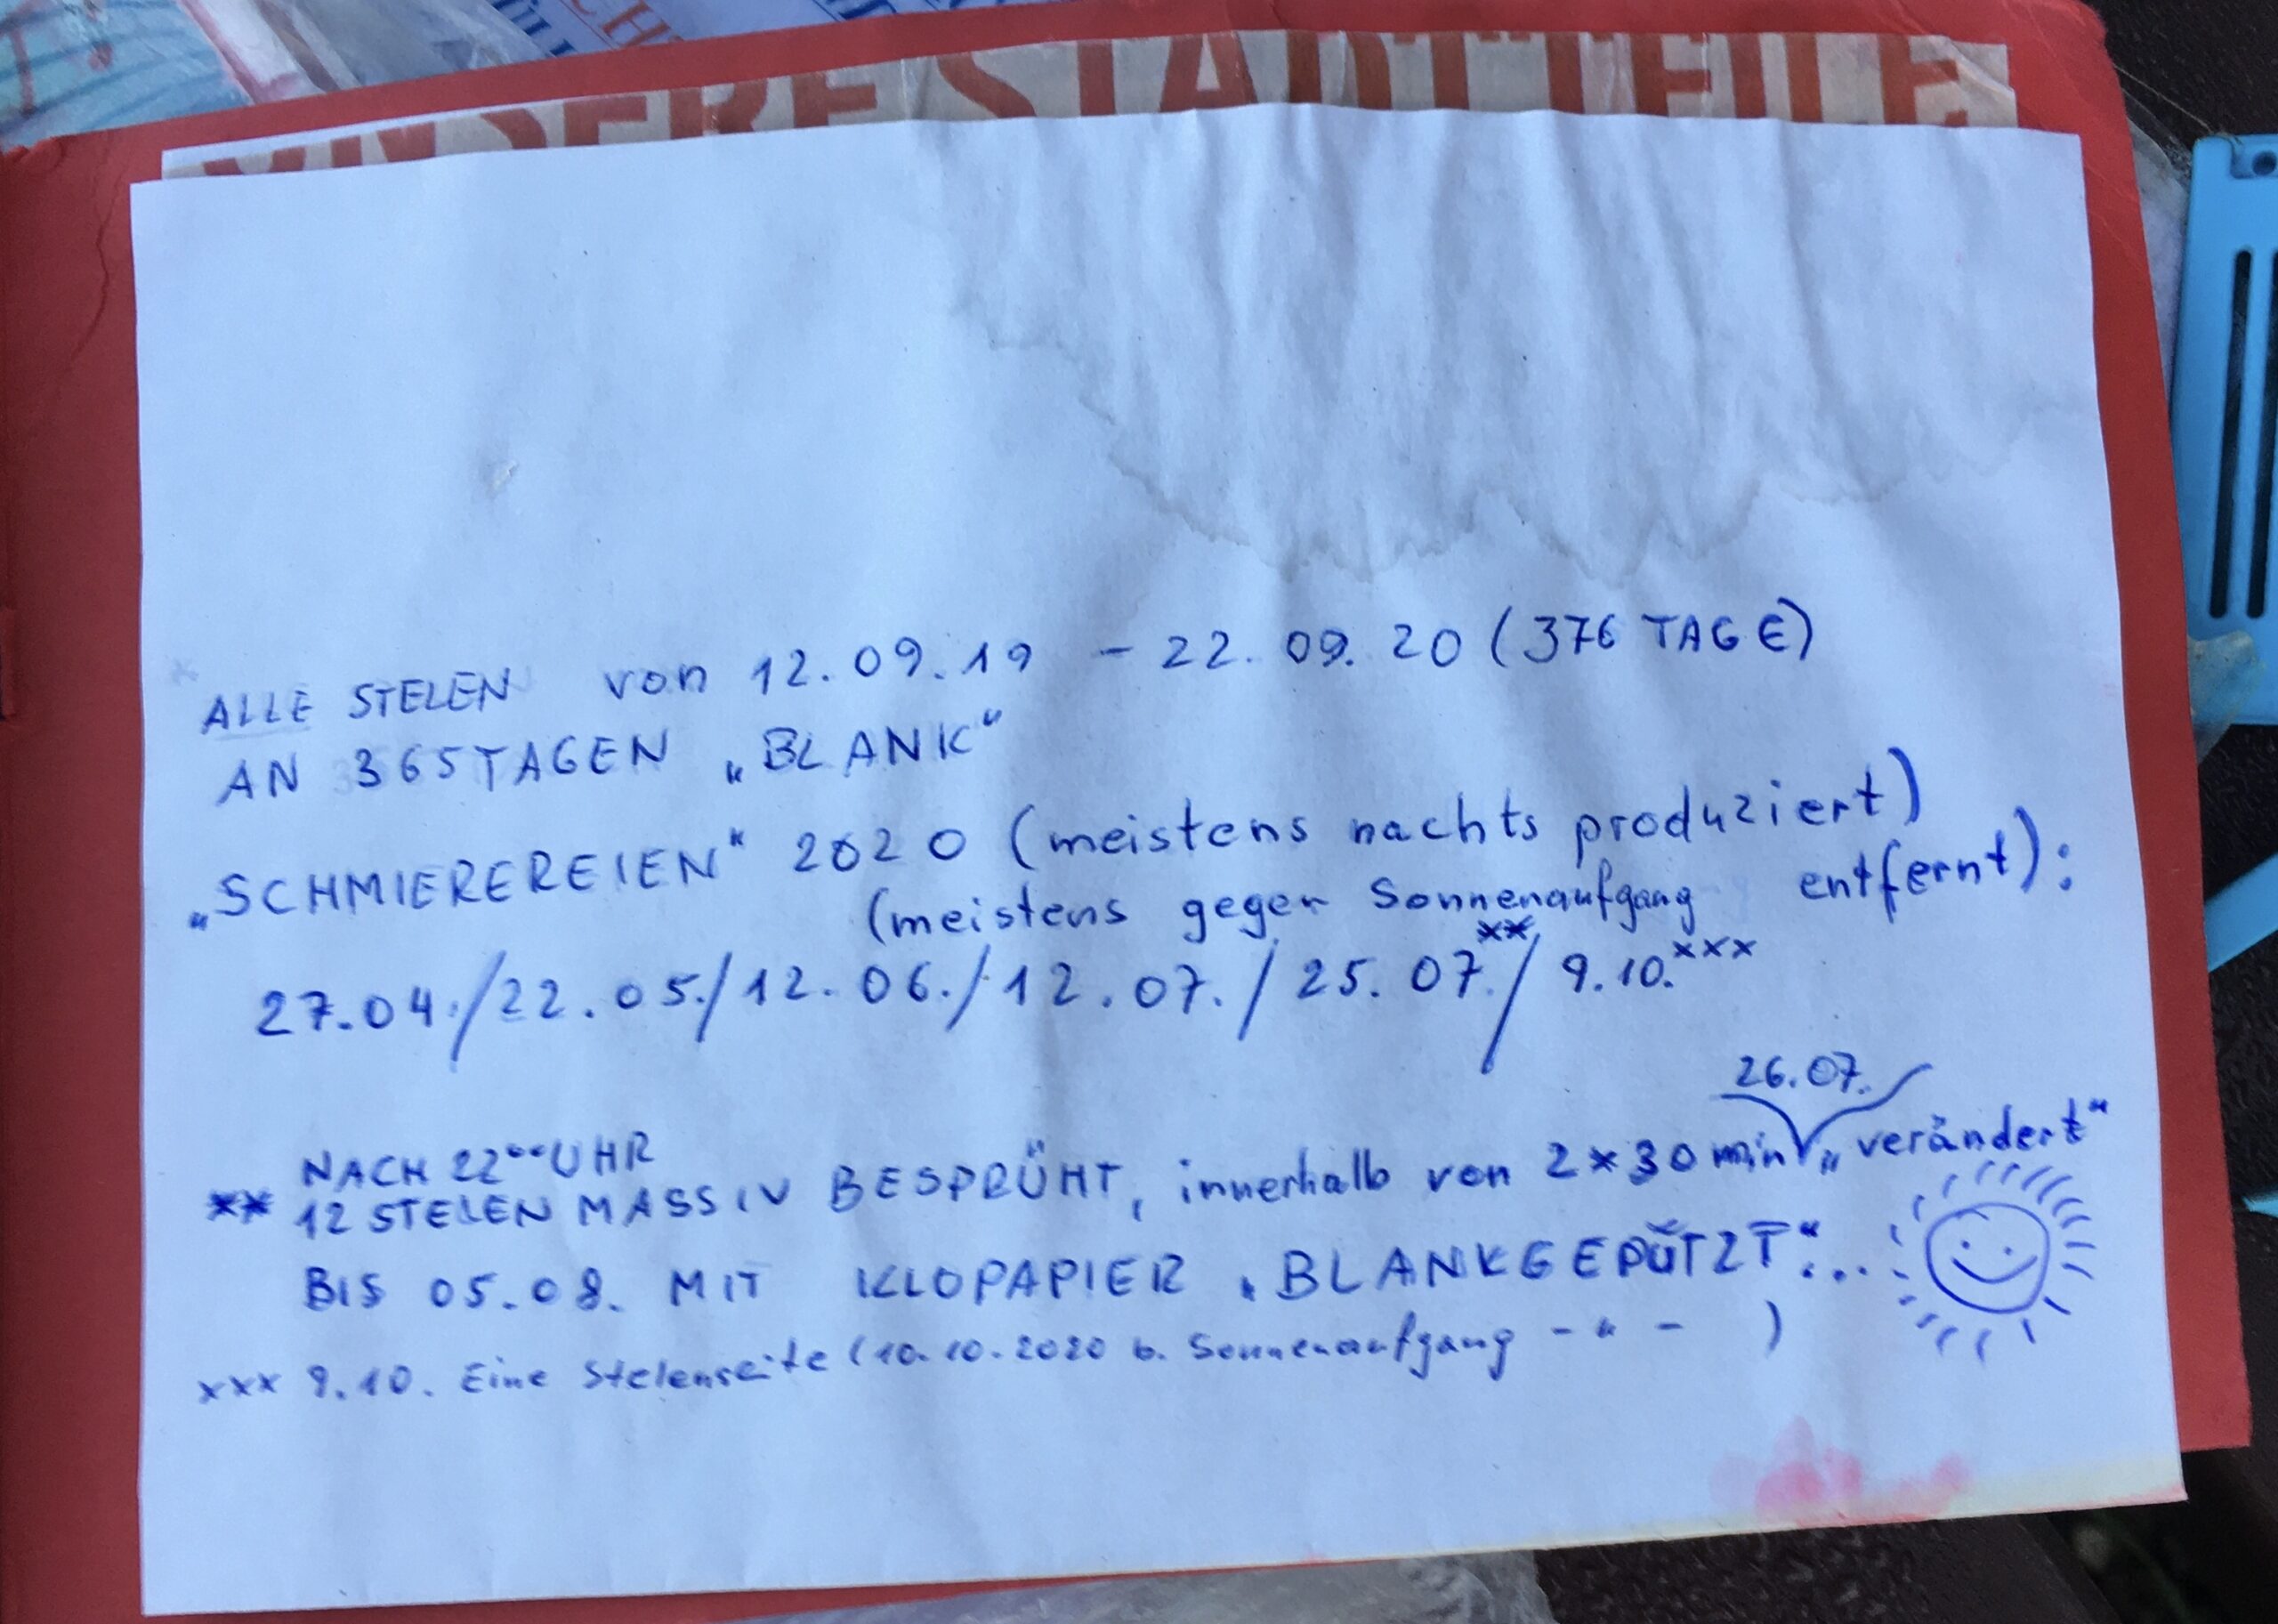 UNSERE STADTTEILE
ALLE STELEN von 12.09.19 - 22.09.20 (376 TAGE)
AN 365 TAGEN „BLANK“
„SCHMIEREREIEN“ 2020 (meistens nachts produziert)
(meistens gegen Sonnenaufgang entfernt):
27.04./22.05./12.06./12.07./25.07.**/9.10.xxx
26.07.
NACH 22°°UHR
** 12 STELEN MASSIV BESPRÜHT, innerhalb von 2x30min „verändert“
BIS 05.08. MIT KLOPAPIER „BLANKGEPUTZT“...
xxx 9.10. Eine Stelenseite (10.10.2020 b. Sonnenaufgang - " - )